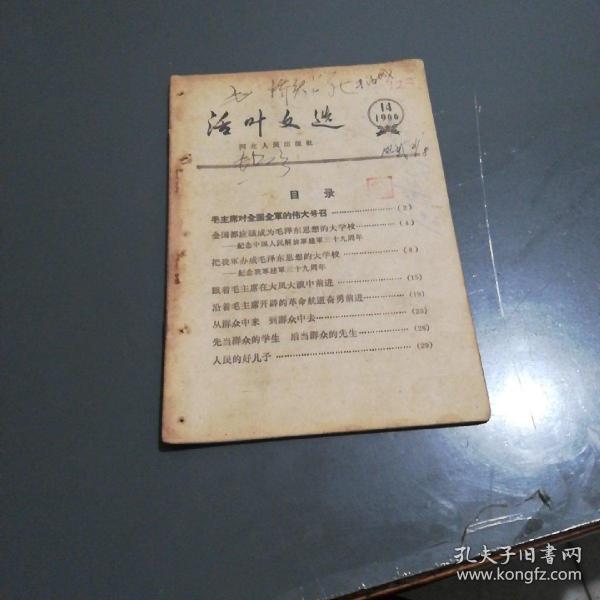 活叶文选
14
1966
河北人民出版社
目录
毛主席对全国全軍的伟大号召 …………………… (2)
全国都应該成为毛泽东思想的大学校 …………… (4)
——紀念中国人民解放軍建軍三十九周年
把我軍办成毛泽东思想的大学校 ………………… (8)
——紀念我軍建軍三十九周年
跟着毛主席在大风大浪中前进 …………………… (15)
沿着毛主席开辟的革命航道奋勇前进 …………… (19)
从群众中来 到群众中去 …………………………… (25)
先当群众的学生 后当群众的先生 ………………… (28)
人民的好儿子 ……………………………………… (29)
孔夫子旧書网
www.kongfz.com